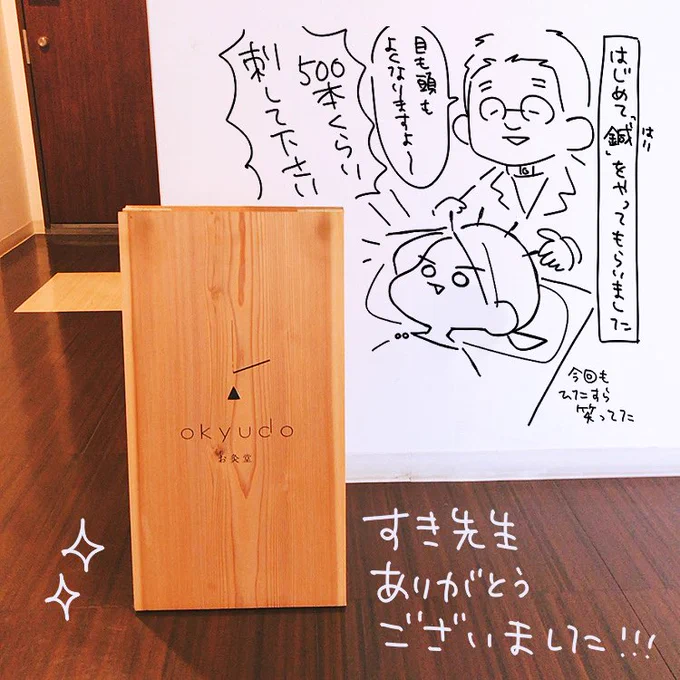 はじめて「鍼」をやってもらいました
はり
目も頭も
よくなりますよ〜
500
本くらい
刺して下さい
今回も
ひたすら
笑ってた
okyudo
お灸堂
すき先生
ありがとう
ございました!!!